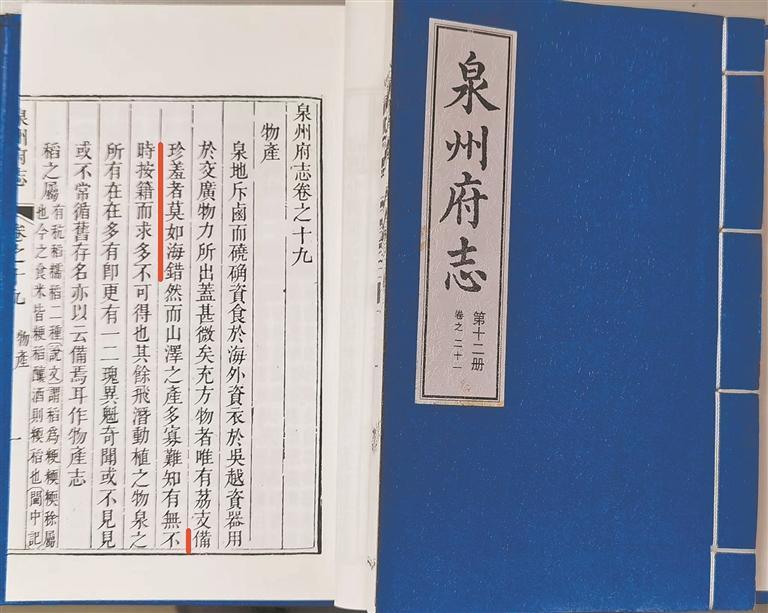 泉州府志卷之十九
物產
泉地斥鹵而磽确資食於海外資衣於吳越資器用
於交廣物力所出蓋甚微矣充方物者唯有荔支備
珍羞者莫如海錯然而山澤之產多寡難知有無不
時按籍而求多不可得也其餘飛潛動植之物泉之
所有在在多有卽更有一二瑰異魁奇聞或不見見
或不常循舊存名亦以云備焉耳作物產志
稻之屬有秔稻糯稻二種說文謂稻爲稉稉徐屬
也今之食米皆稉稻釀酒則稉稻也閩中記
泉州府志
卷之十九
物產
一
泉州府志
第十二册
卷之 二十一